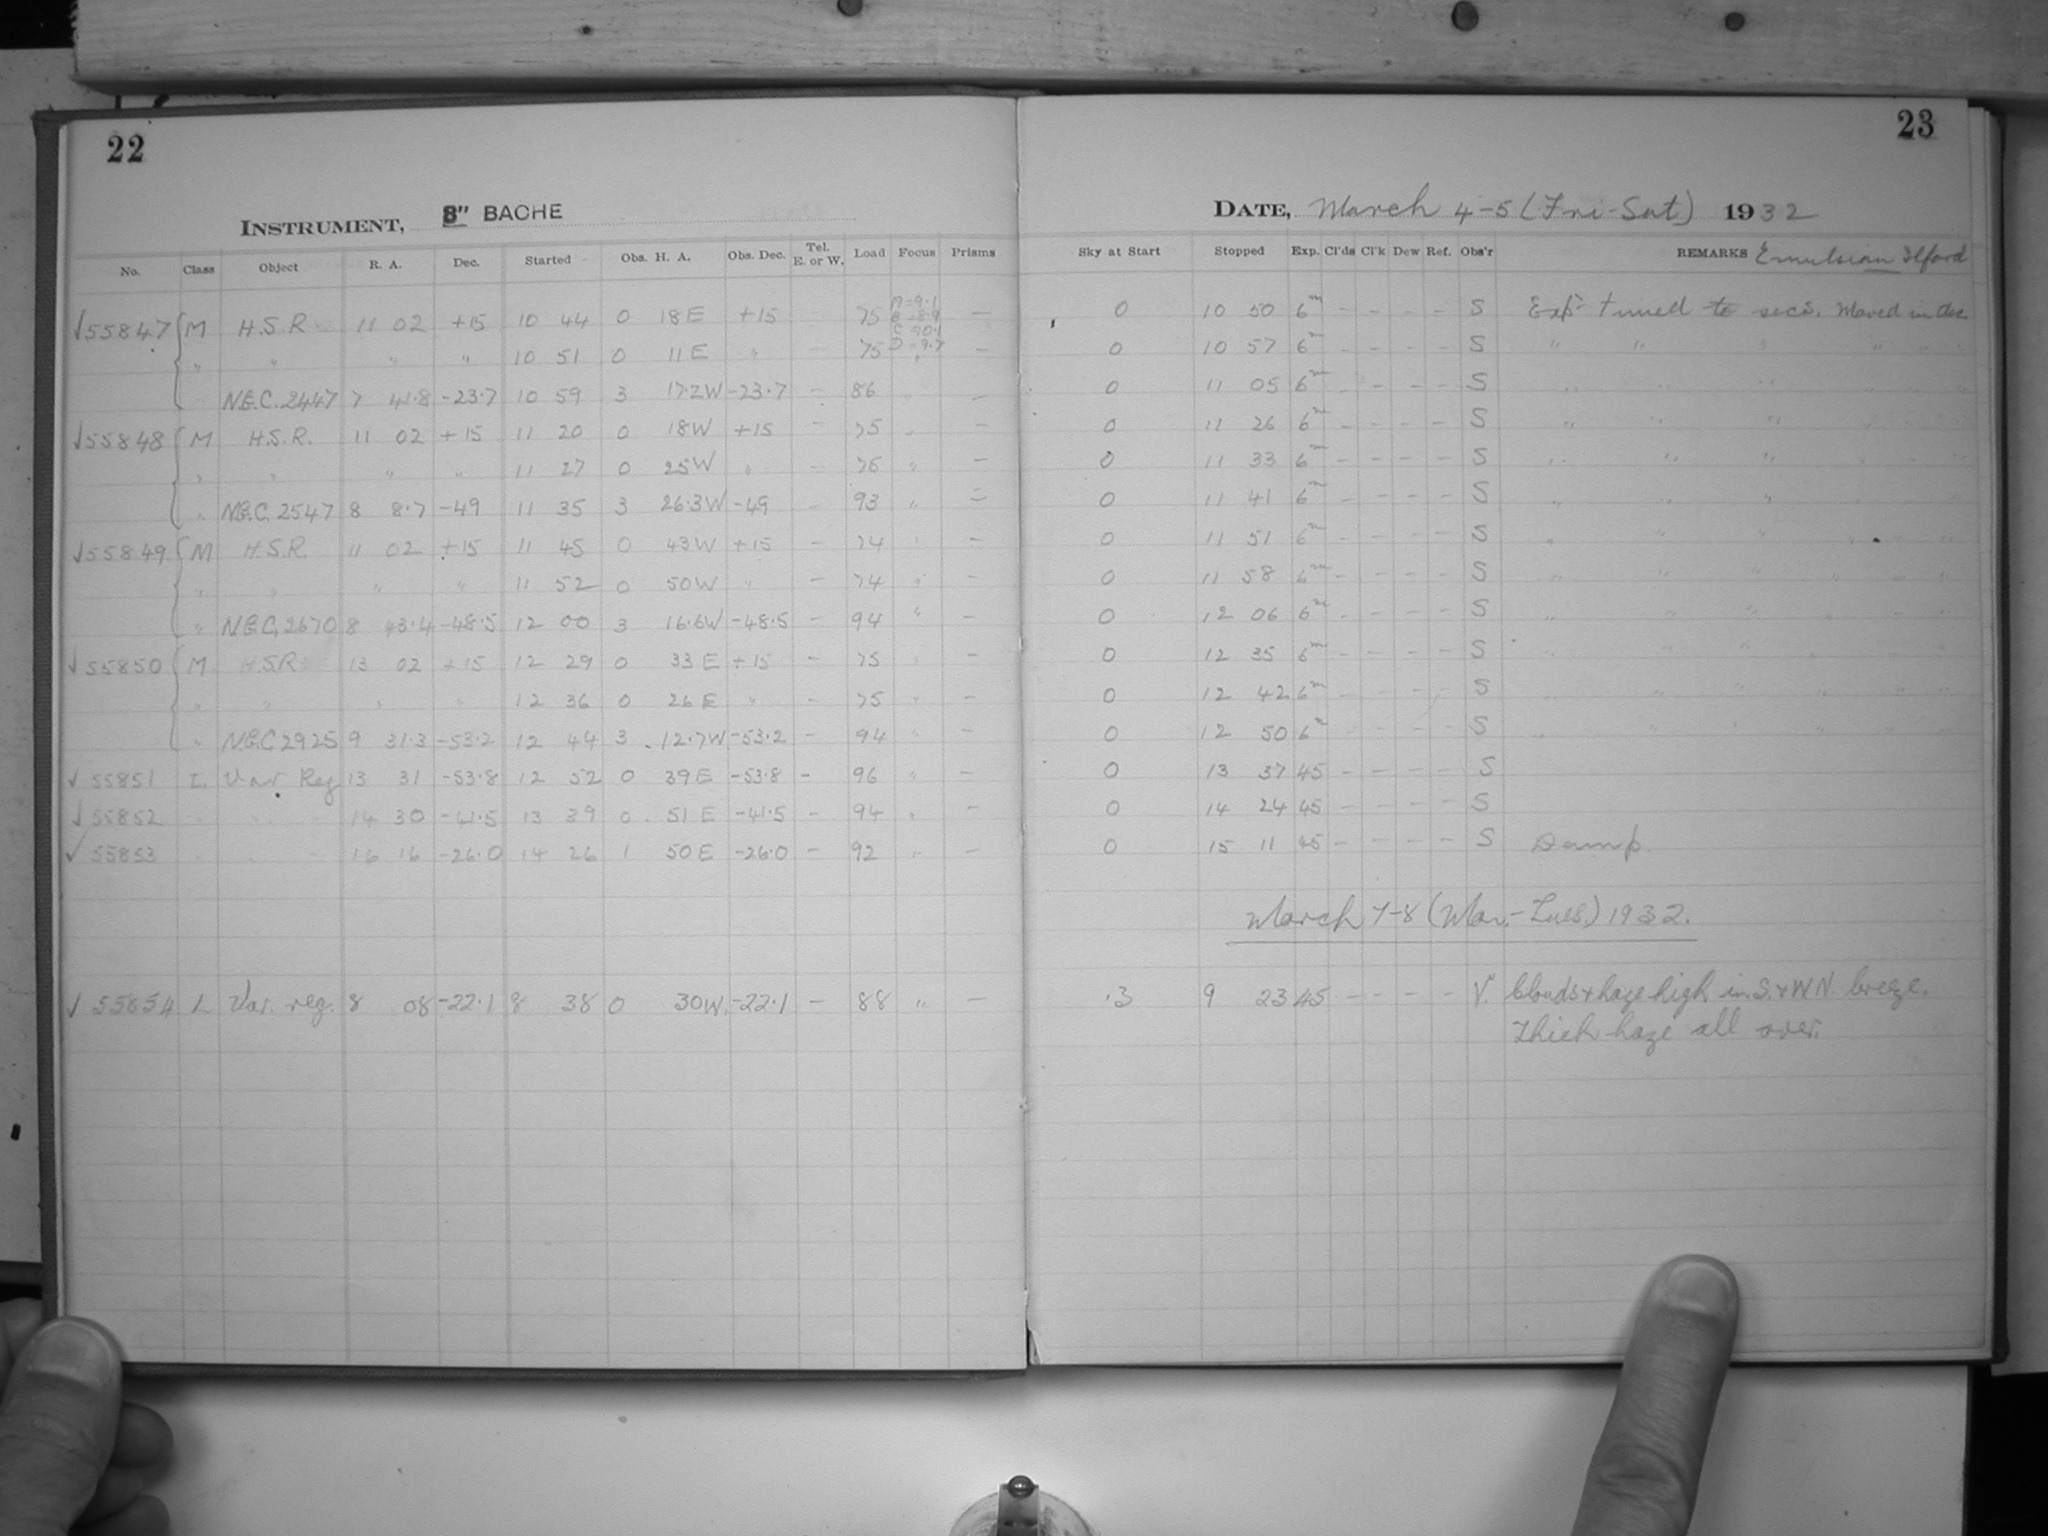 22
INSTRUMENT, 8" BACHE
No. Class Object R. A. Dec. Started Obs. H. A. Obs. Dec. Tel. E. or W. Load Focus Prisms
√55847 M H.S.R 11 02 +15 10 44 0 18E +15 75 A=9.1 —
" " " " 10 51 0 11E " – 75 " —
N.G.C. 2447 7 41.8 -23.7 10 59 3 17.2W -23.7 – 86 " —
√55848 M H.S.R. 11 02 +15 11 20 0 18W +15 – 75 " —
" " " " 11 27 0 25W " – 76 " —
" N.G.C. 2547 8 8.7 -49 11 35 3 26.3W -49 – 93 " —
√55849 M H.S.R. 11 02 +15 11 45 0 43W +15 – 74 " —
" " " " 11 52 0 50W " – 74 " —
" N.G.C. 2670 8 43.4 -48.5 12 00 3 16.6W -48.5 – 94 " —
√55850 M H.S.R 13 02 +15 12 29 0 33E +15 – 75 " —
" " " " 12 36 0 26E " – 75 " —
" N.G.C 2925 9 31.3 -53.2 12 44 3 12.7W -53.2 – 94 " —
√55851 L. Var Reg 13 31 -53.8 12 52 0 39E -53.8 – 96 " —
√55852 " " " 14 30 -41.5 13 39 0 51E -41.5 – 94 " —
√55853 " " " 16 16 -26.0 14 26 1 50E -26.0 – 92 " —
√55854 L Var. reg. 8 08 -22.1 8 38 0 30W -22.1 – 88 " —
23
DATE, March 4-5 (Fri-Sat) 1932
Sky at Start Stopped Exp. Cl'ds Cl'k Dew Ref. Obs'r REMARKS Emulsion Ilford
0 10 50 6m – – – – S Exp. timed to secs. Moved in dec
0 10 57 6m – – – – S " " " " " "
0 11 05 6m – – – – S " " " " " "
0 11 26 6m – – – – S " " " " " "
0 11 33 6m – – – – S " " " " " "
0 11 41 6m – – – – S " " " " " "
0 11 51 6m – – – – S " " " " " "
0 11 58 6m – – – – S " " " " " "
0 12 06 6m – – – – S " " " " " "
0 12 35 6m – – – – S " " " " " "
0 12 42 6m – – – – S " " " " " "
0 12 50 6m – – – – S " " " " " "
0 13 37 45 – – – – S
0 14 24 45 – – – – S
0 15 11 45 – – – – S Damp.
March 7-8 (Mon.-Tues.) 1932.
.3 9 23 45 – – – – V. Clouds & haze high in S. & W N. breeze.
Thick haze all over.